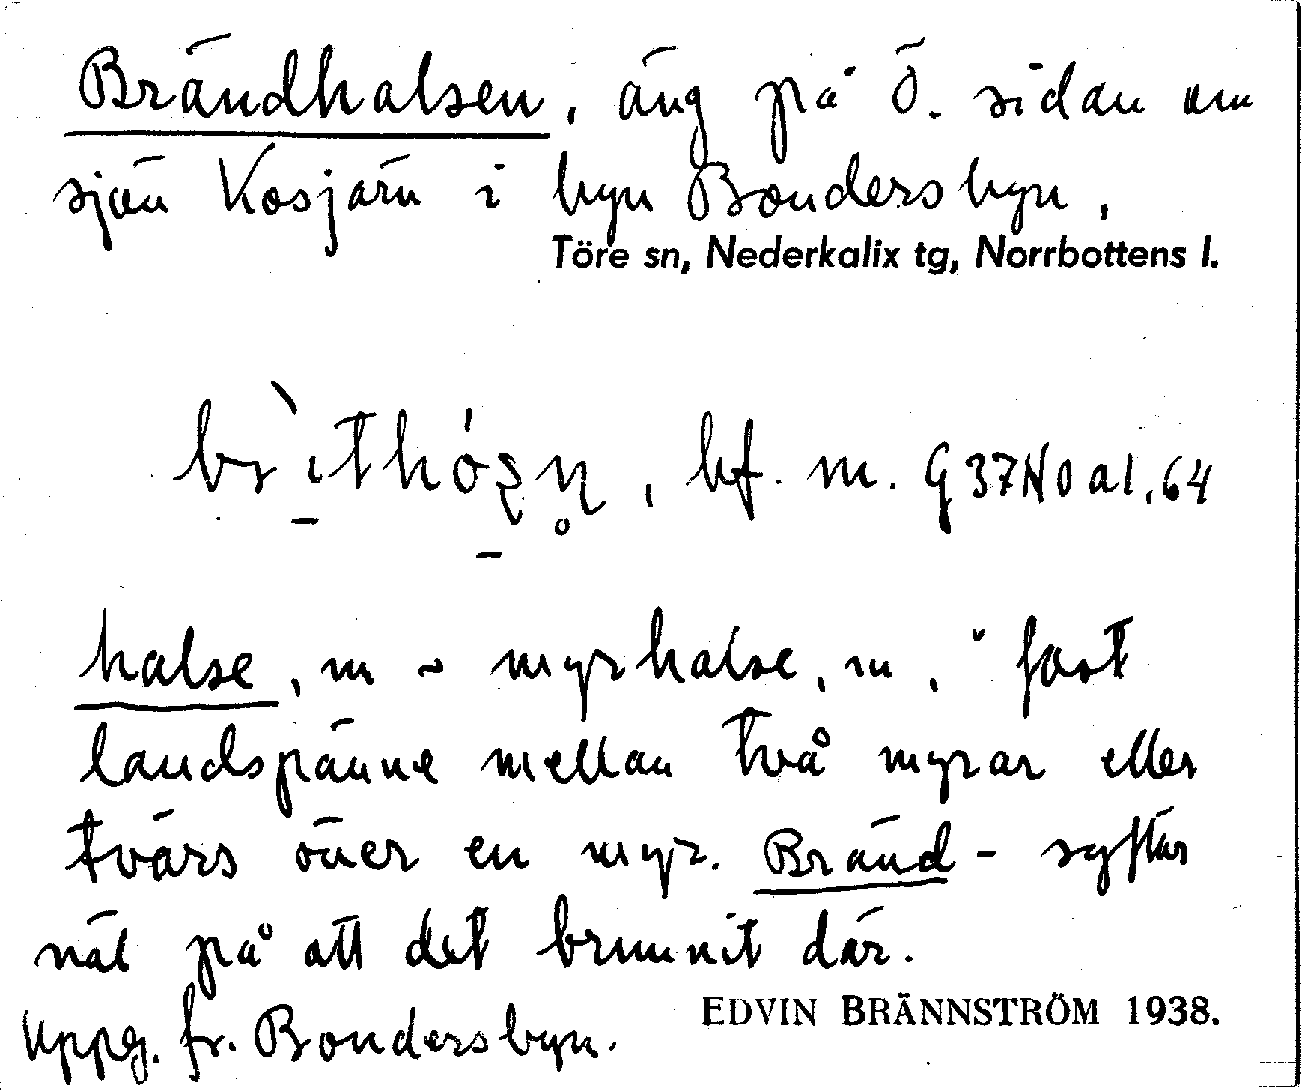 Brändhalsen, äng på Ö. sidan om
sjön Kosjärn i byn Bondersbyn,
Töre sn, Nederkalix tg, Norrbottens l.
bf. m. G 37 N 0 a 1, 64
halse, m ~ myrhalse, m, "fast
landspänne mellan två myrar eller
tvärs över en myr. Bränd- syftar
väl på att det brunnit där.
Uppg. fr. Bondersbyn.
EDVIN BRÄNNSTRÖM 1938.